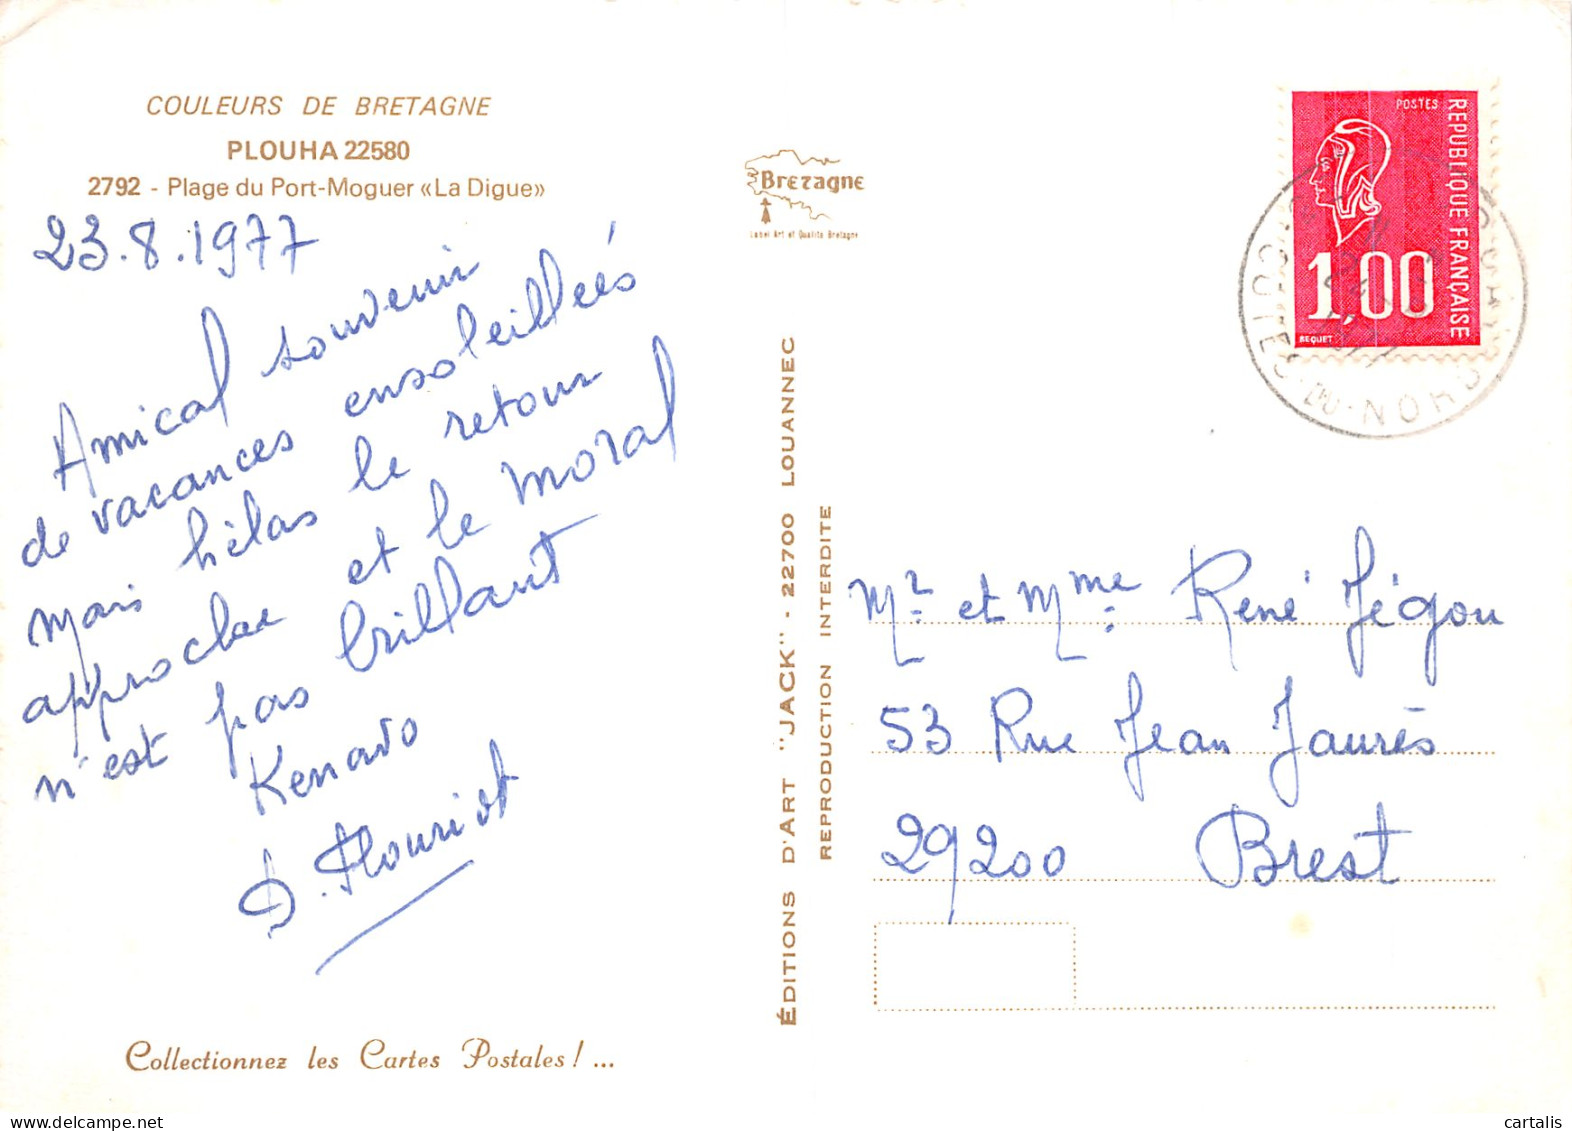 COULEURS DE BRETAGNE
PLOUHA 22580
2792 - Plage du Port-Moguer «La Digue»
23.8.1977
Amical souvenir
de vacances ensoleillées
mais hélas le retour
approche et le moral
n'est pas brillant
Kenavo
D. Flouriot
Collectionnez les Cartes Postales ! ...
Bretagne
Label Art et Qualité Bretagne
ÉDITIONS D'ART "JACK" - 22700 LOUANNEC
REPRODUCTION INTERDITE
POSTES
REPUBLIQUE FRANÇAISE
1,00
BEQUET
COTES-DU-NORD
Mr et Mme René Jégou
53 Rue Jean Jaurès
29200 Brest
cartalis